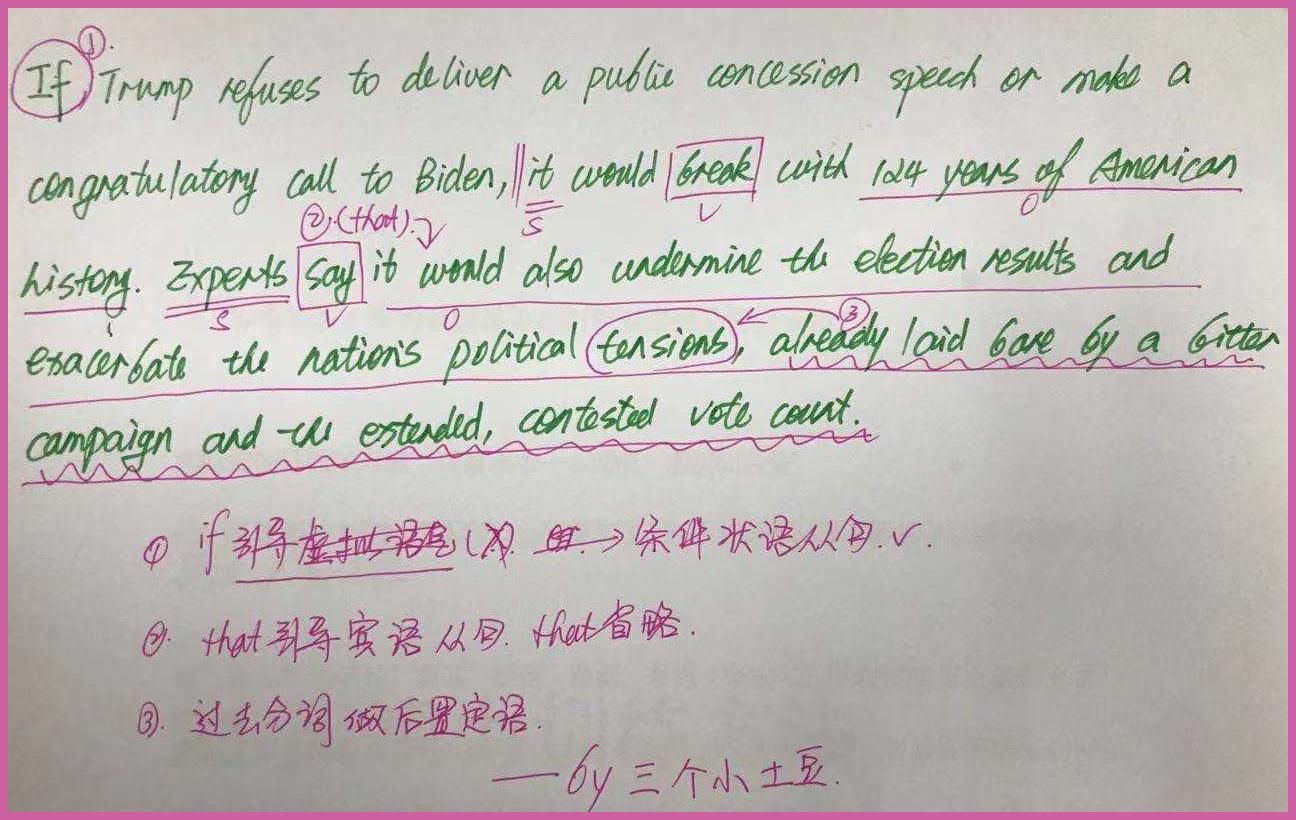 ①.
If Trump refuses to deliver a public concession speech or make a
congratulatory call to Biden, it would break with 124 years of American
②.(that). S V O
history. Experts say it would also undermine the election results and
S V O ③
exacerbate the nation's political tensions, already laid bare by a bitter
campaign and the extended, contested vote count.
① if 引导虚拟语气(X) → 条件状语从句.✓.
②. that引导宾语从句. that省略.
③. 过去分词做后置定语.
—by 三个小土豆.